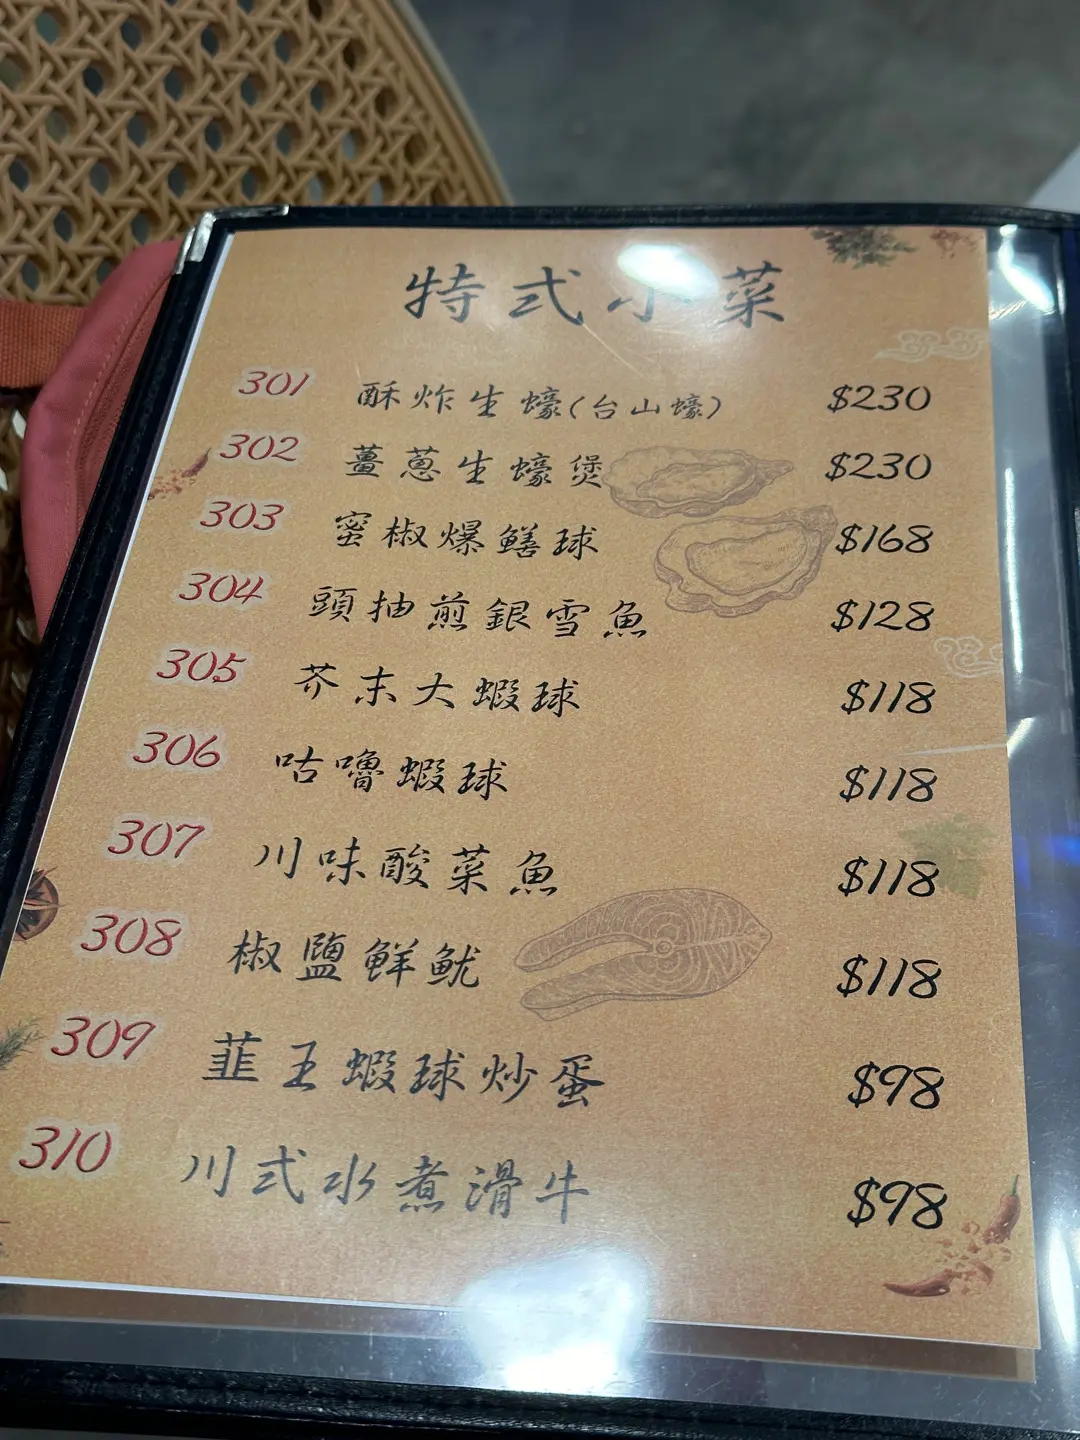 特式小菜
301 酥炸生蠔(台山蠔) $230
302 薑蔥生蠔煲 $230
303 蜜椒爆鱔球 $168
304 頭抽煎銀雪魚 $128
305 芥末大蝦球 $118
306 咕嚕蝦球 $118
307 川味酸菜魚 $118
308 椒鹽鮮魷 $118
309 韮王蝦球炒蛋 $98
310 川式水煮滑牛 $98